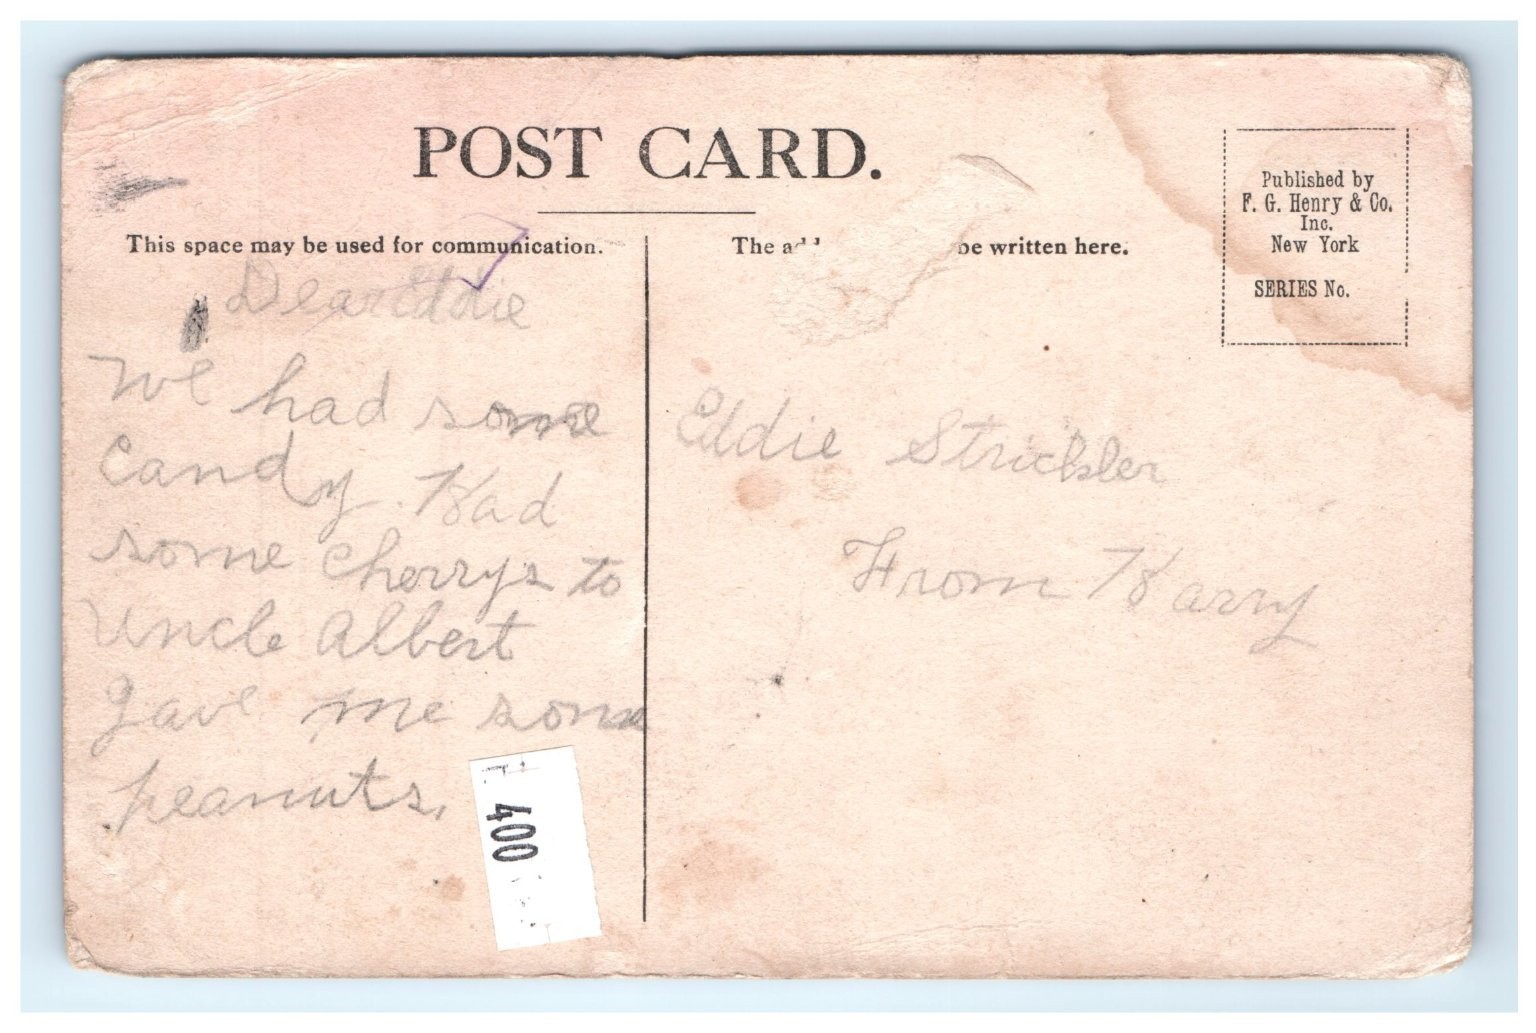 POST CARD.
This space may be used for communication.
Dear Eddie
We had some
candy. Had
some cherrys to
Uncle Albert
gave me some
peanuts.
400
The be written here.
Eddie Strickler
From Harry
Published by
F. G. Henry & Co.
Inc.
New York
SERIES No.